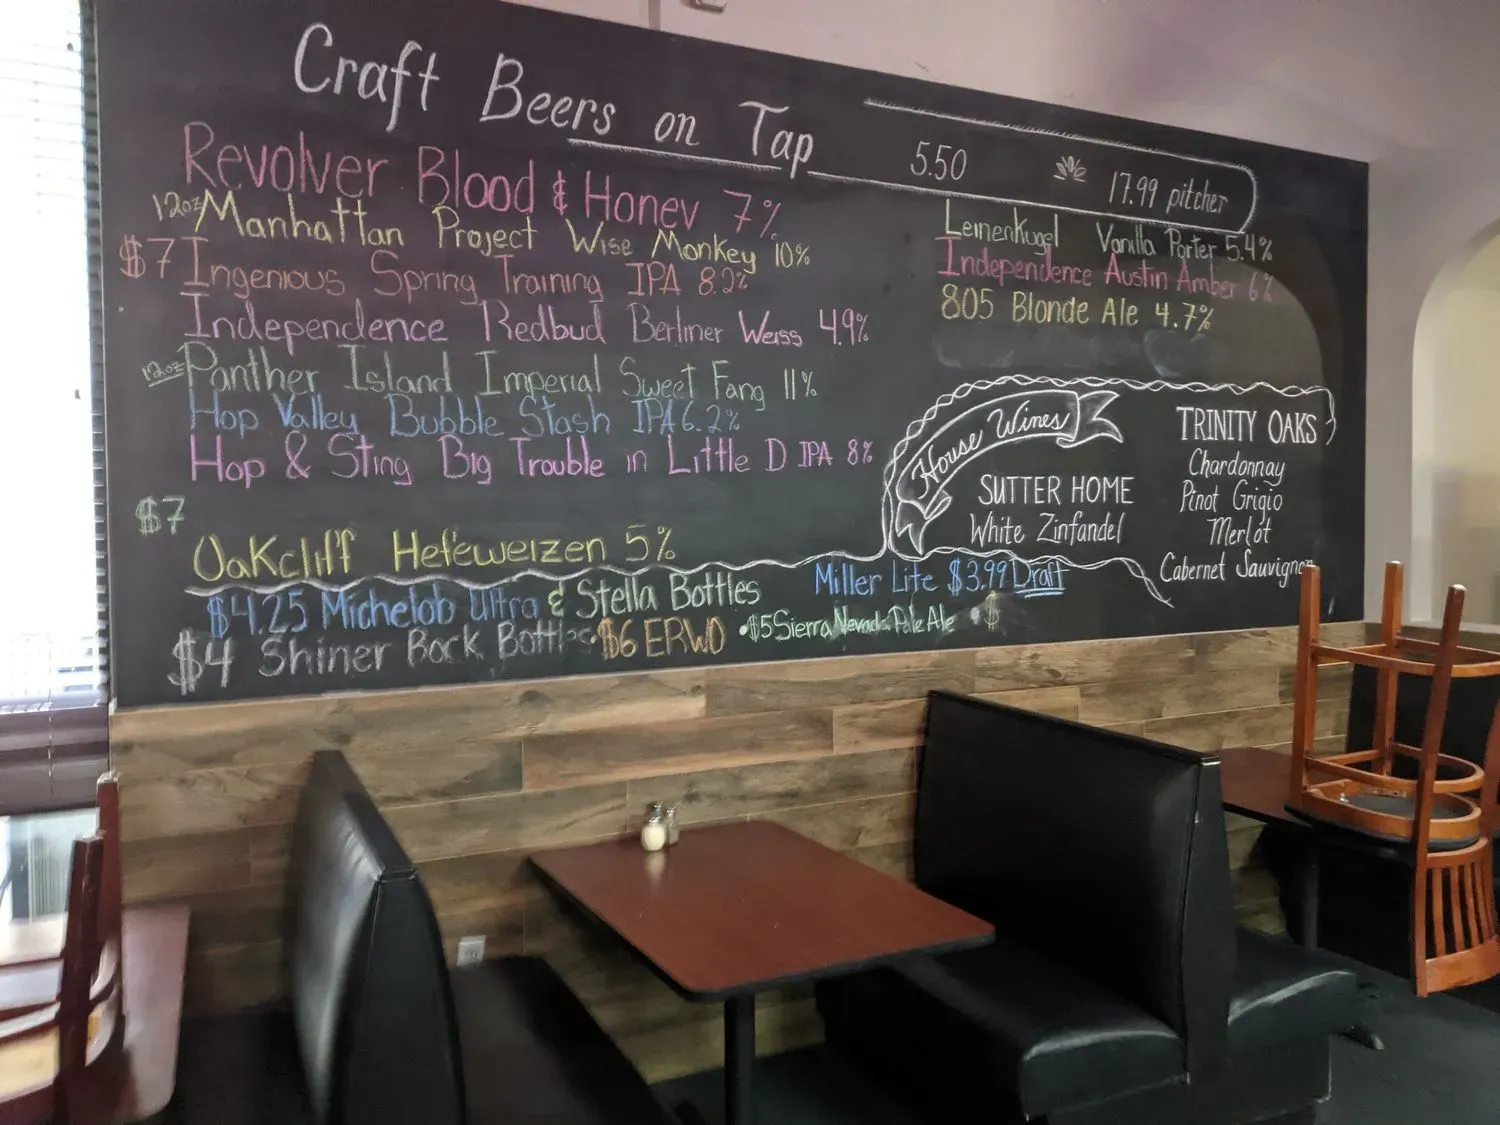 Craft Beers on Tap
5.50 17.99 pitcher
Revolver Blood & Honey 7%
12oz Manhattan Project Wise Monkey 10%
$7 Ingenious Spring Training IPA 8.2%
Independence Redbud Berliner Weiss 4.9%
12oz Panther Island Imperial Sweet Fang 11%
Hop Valley Bubble Stash IPA 6.2%
Hop & Sting Big Trouble in Little D IPA 8%
$7
Oakcliff Hefeweizen 5%
Leinenkugel Vanilla Porter 5.4%
Independence Austin Amber 6%
805 Blonde Ale 4.7%
House Wines
SUTTER HOME
White Zinfandel
TRINITY OAKS
Chardonnay
Pinot Grigio
Merlot
Cabernet Sauvignon
$4.25 Michelob Ultra & Stella Bottles
Miller Lite $3.99 Draft
$4 Shiner Bock Bottles • $6 ERWO • $5 Sierra Nevada Pale Ale • $